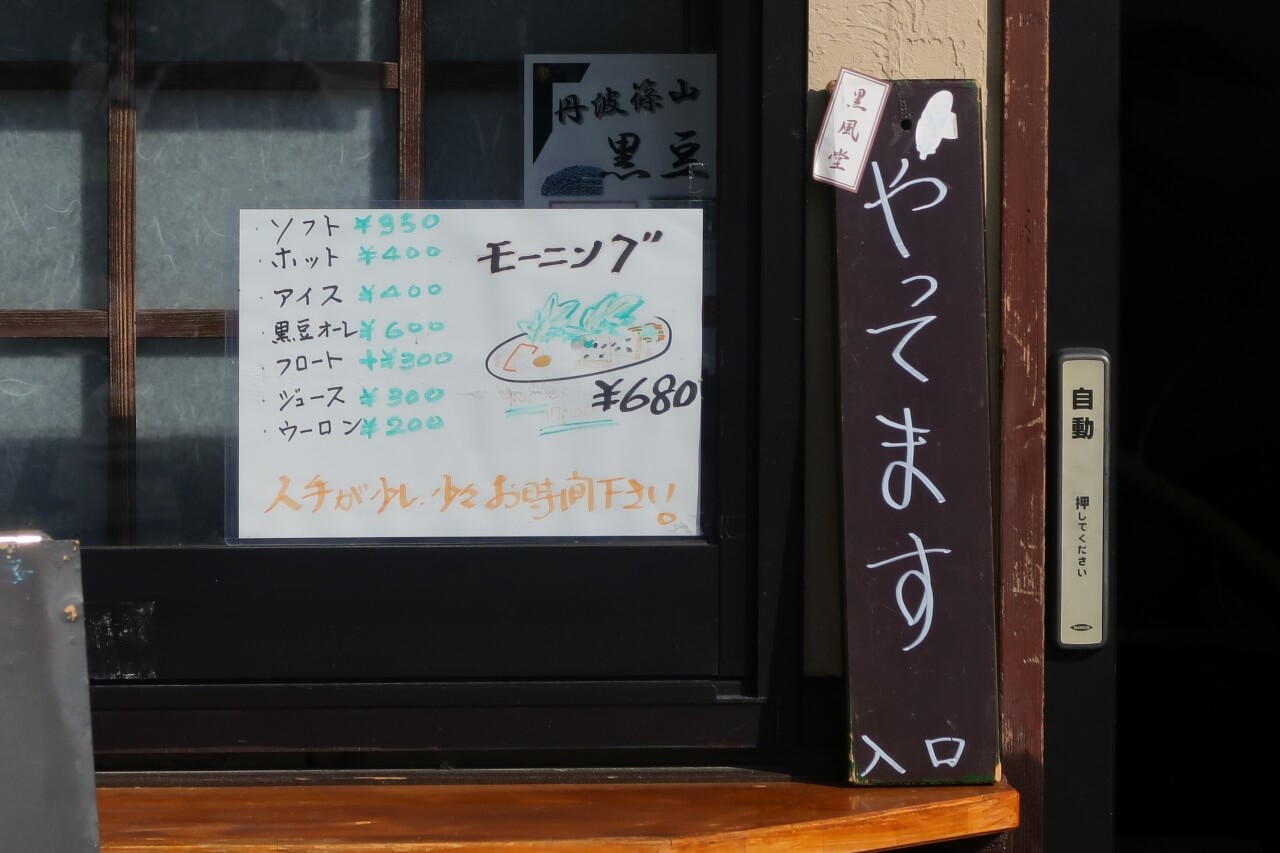 丹波篠山
黒豆
・ソフト ¥350
・ホット ¥400
・アイス ¥400
・黒豆オーレ ¥600
・フロート +¥300
・ジュース ¥300
・ウーロン ¥200
モーニング
¥680
人手が少し、少々お時間下さい。
黒風堂
やってます
入口
自動
押してください